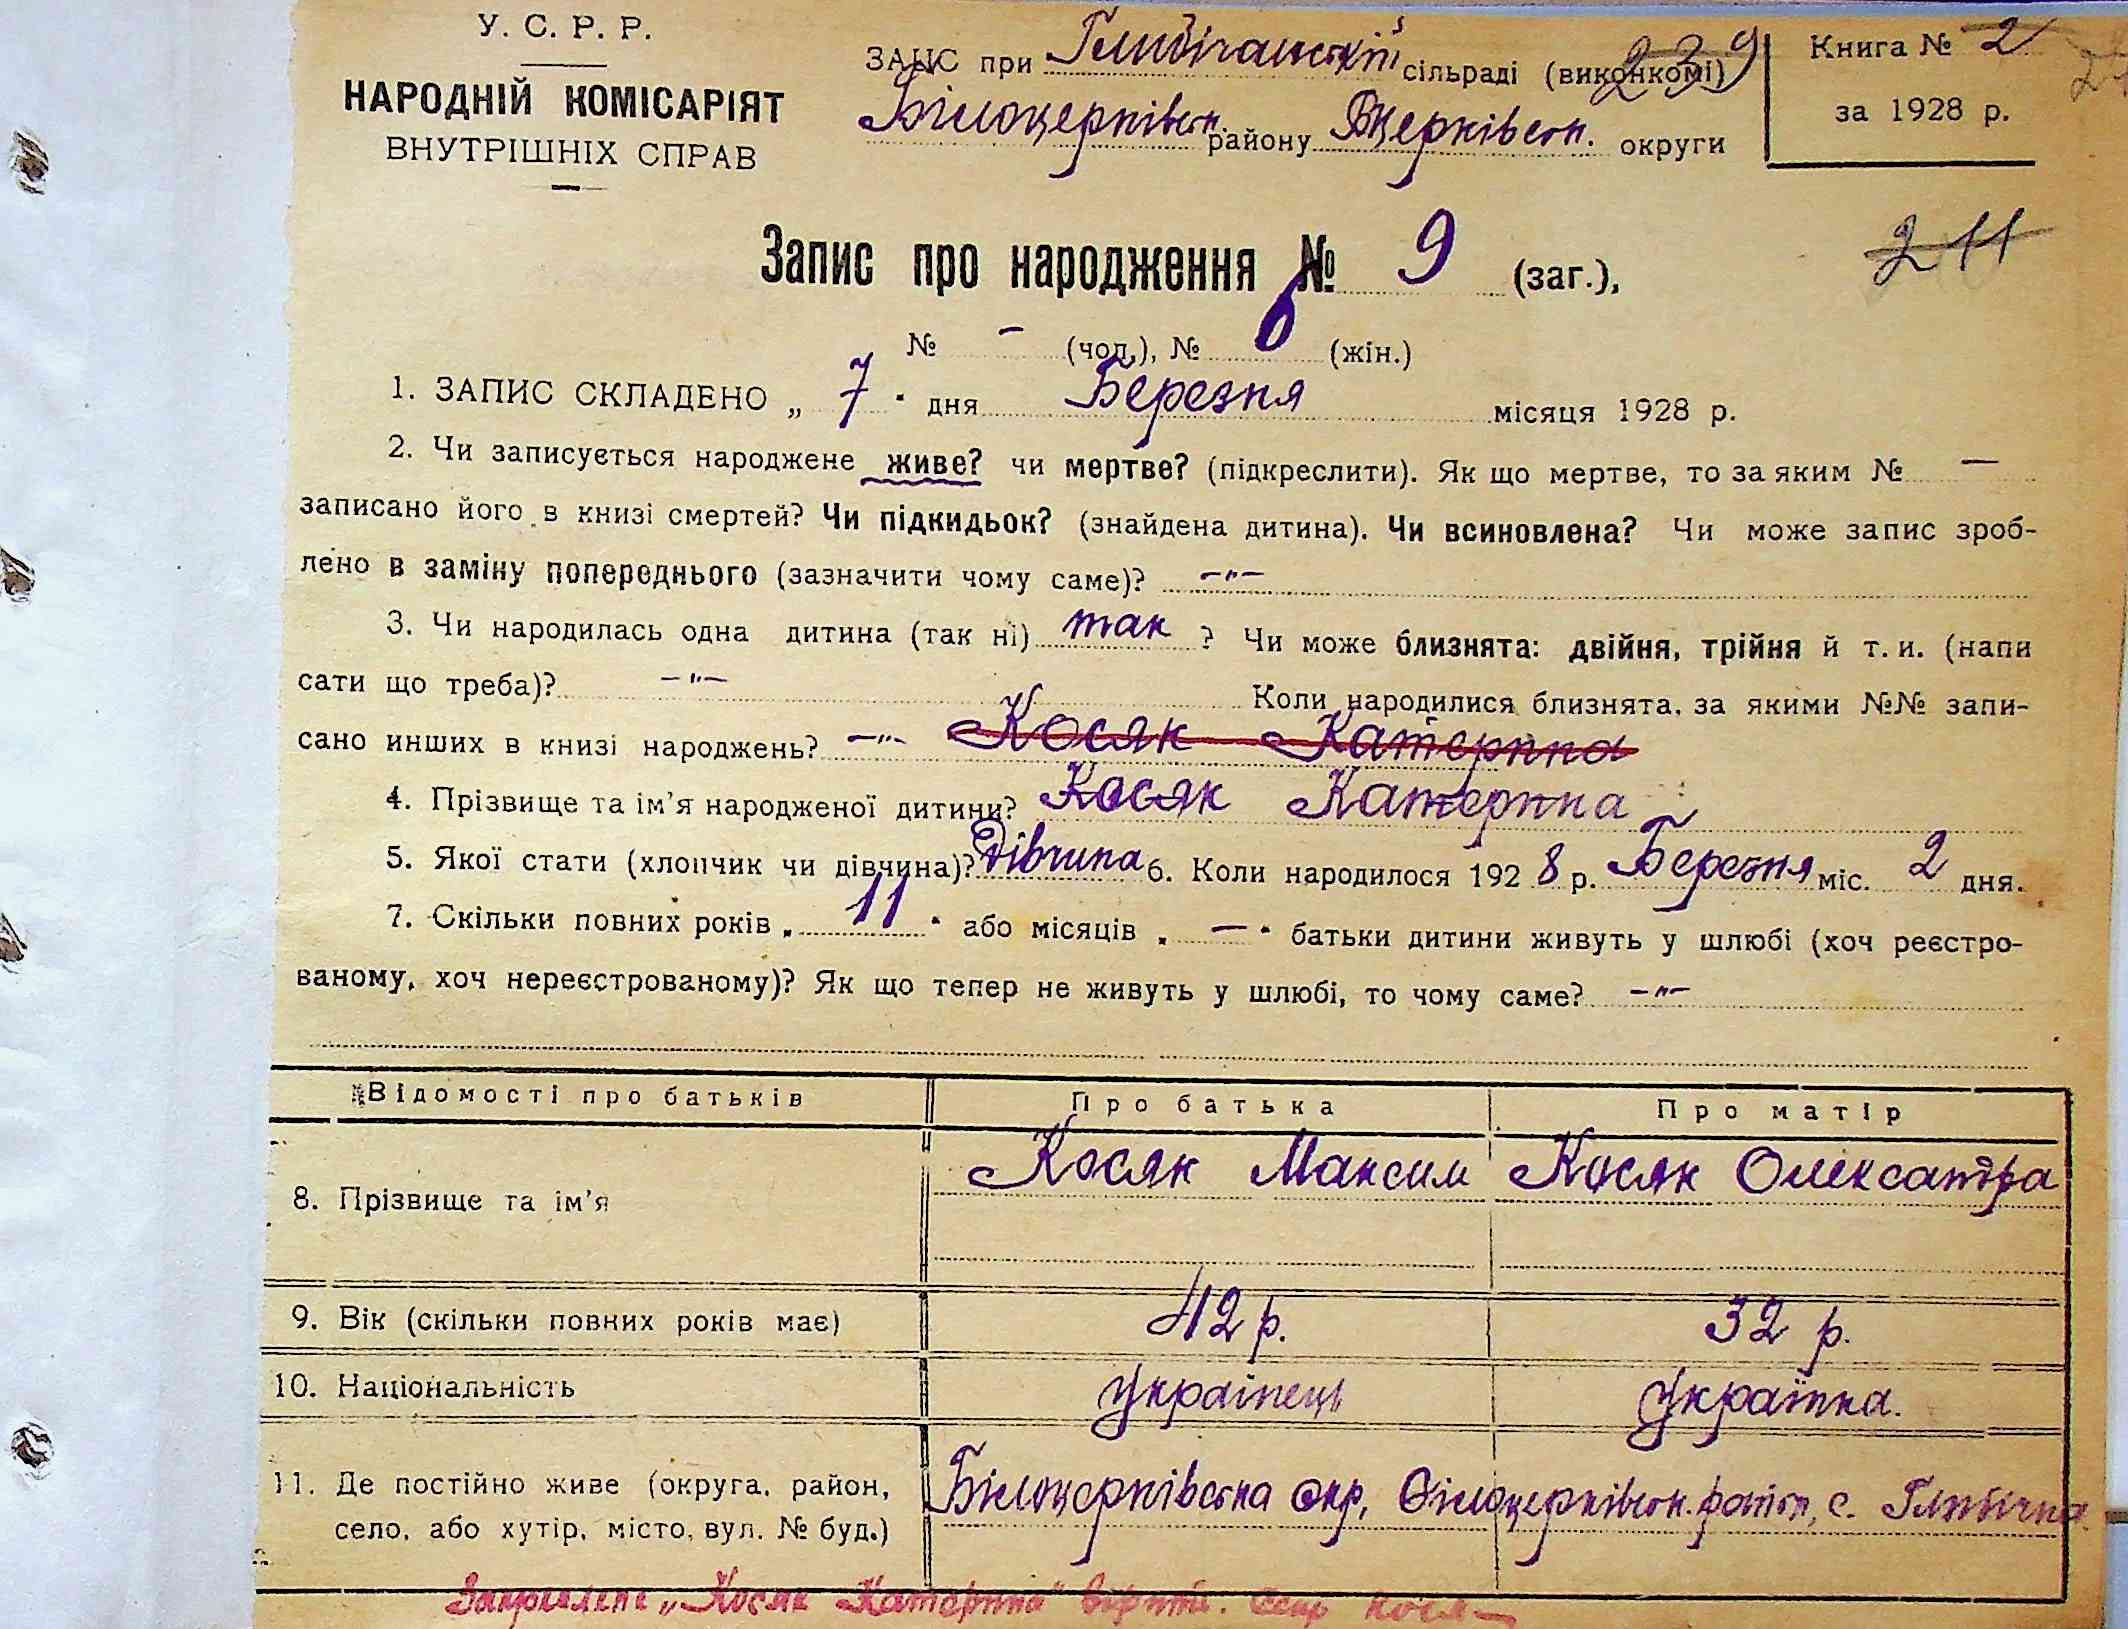 У. С. Р. Р.
НАРОДНІЙ КОМІСАРІЯТ
ВНУТРІШНІХ СПРАВ
ЗАГС при Глибічанській сільраді (виконкомі) 239
Білоцерківськ. району Бцерківськ. округи
Книга № 2
за 1928 р.
211
Запис про народження № 9 (заг.),
№ - (чол.), № 6 (жін.)
1. ЗАПИС СКЛАДЕНО „ 7 " дня Березня місяця 1928 р.
2. Чи записується народжене живе? чи мертве? (підкреслити). Як що мертве, то за яким № —
записано його в книзі смертей? Чи підкидьок? (знайдена дитина). Чи всиновлена? Чи може запис зроб-
лено в заміну попереднього (зазначити чому саме)? —"—
3. Чи народилась одна дитина (так ні) так ? Чи може близнята: двійня, трійня й т. и. (напи
сати що треба)? —"— Коли народилися близнята, за якими №№ запи-
сано инших в книзі народжень? —"— Косяк Катерина
4. Прізвище та ім'я народженої дитини? Косяк Катерина
5. Якої стати (хлопчик чи дівчина)? Дівчина 6. Коли народилося 1928 р. Березня міс. 2 дня.
7. Скільки повних років „ 11 " або місяців „ — " батьки дитини живуть у шлюбі (хоч реєстро-
ваному, хоч нереєстрованому)? Як що тепер не живуть у шлюбі, то чому саме? —"—
Відомості про батьків Про батька Про матір
8. Прізвище та ім'я Косяк Максим Косяк Олександра
9. Вік (скільки повних років має) 42 р. 32 р.
10. Національність Українець Українка.
11. Де постійно живе (округа, район,
село, або хутір, місто, вул. № буд.) Білоцерківська окр, Білоцерківськ. район, с. Глибічка
„Косяк Катерина" вірити.